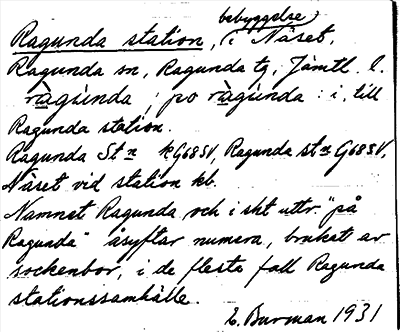 bebyggelse
Ragunda station, (i Näset,
Ragunda sn, Ragunda tg, Jämtl. l.
ràgúnda ; po ràgúnda : i, till
Ragunda station.
Ragunda Stn kG68SV, Ragunda stn G68SV,
Näset vid station kb.
Namnet Ragunda och i skt uttr. "på
Ragunda" åsyftar numera, brukat av
sockenbor, i de flesta fall Ragunda
stationssamhälle.
E. Burman 1931